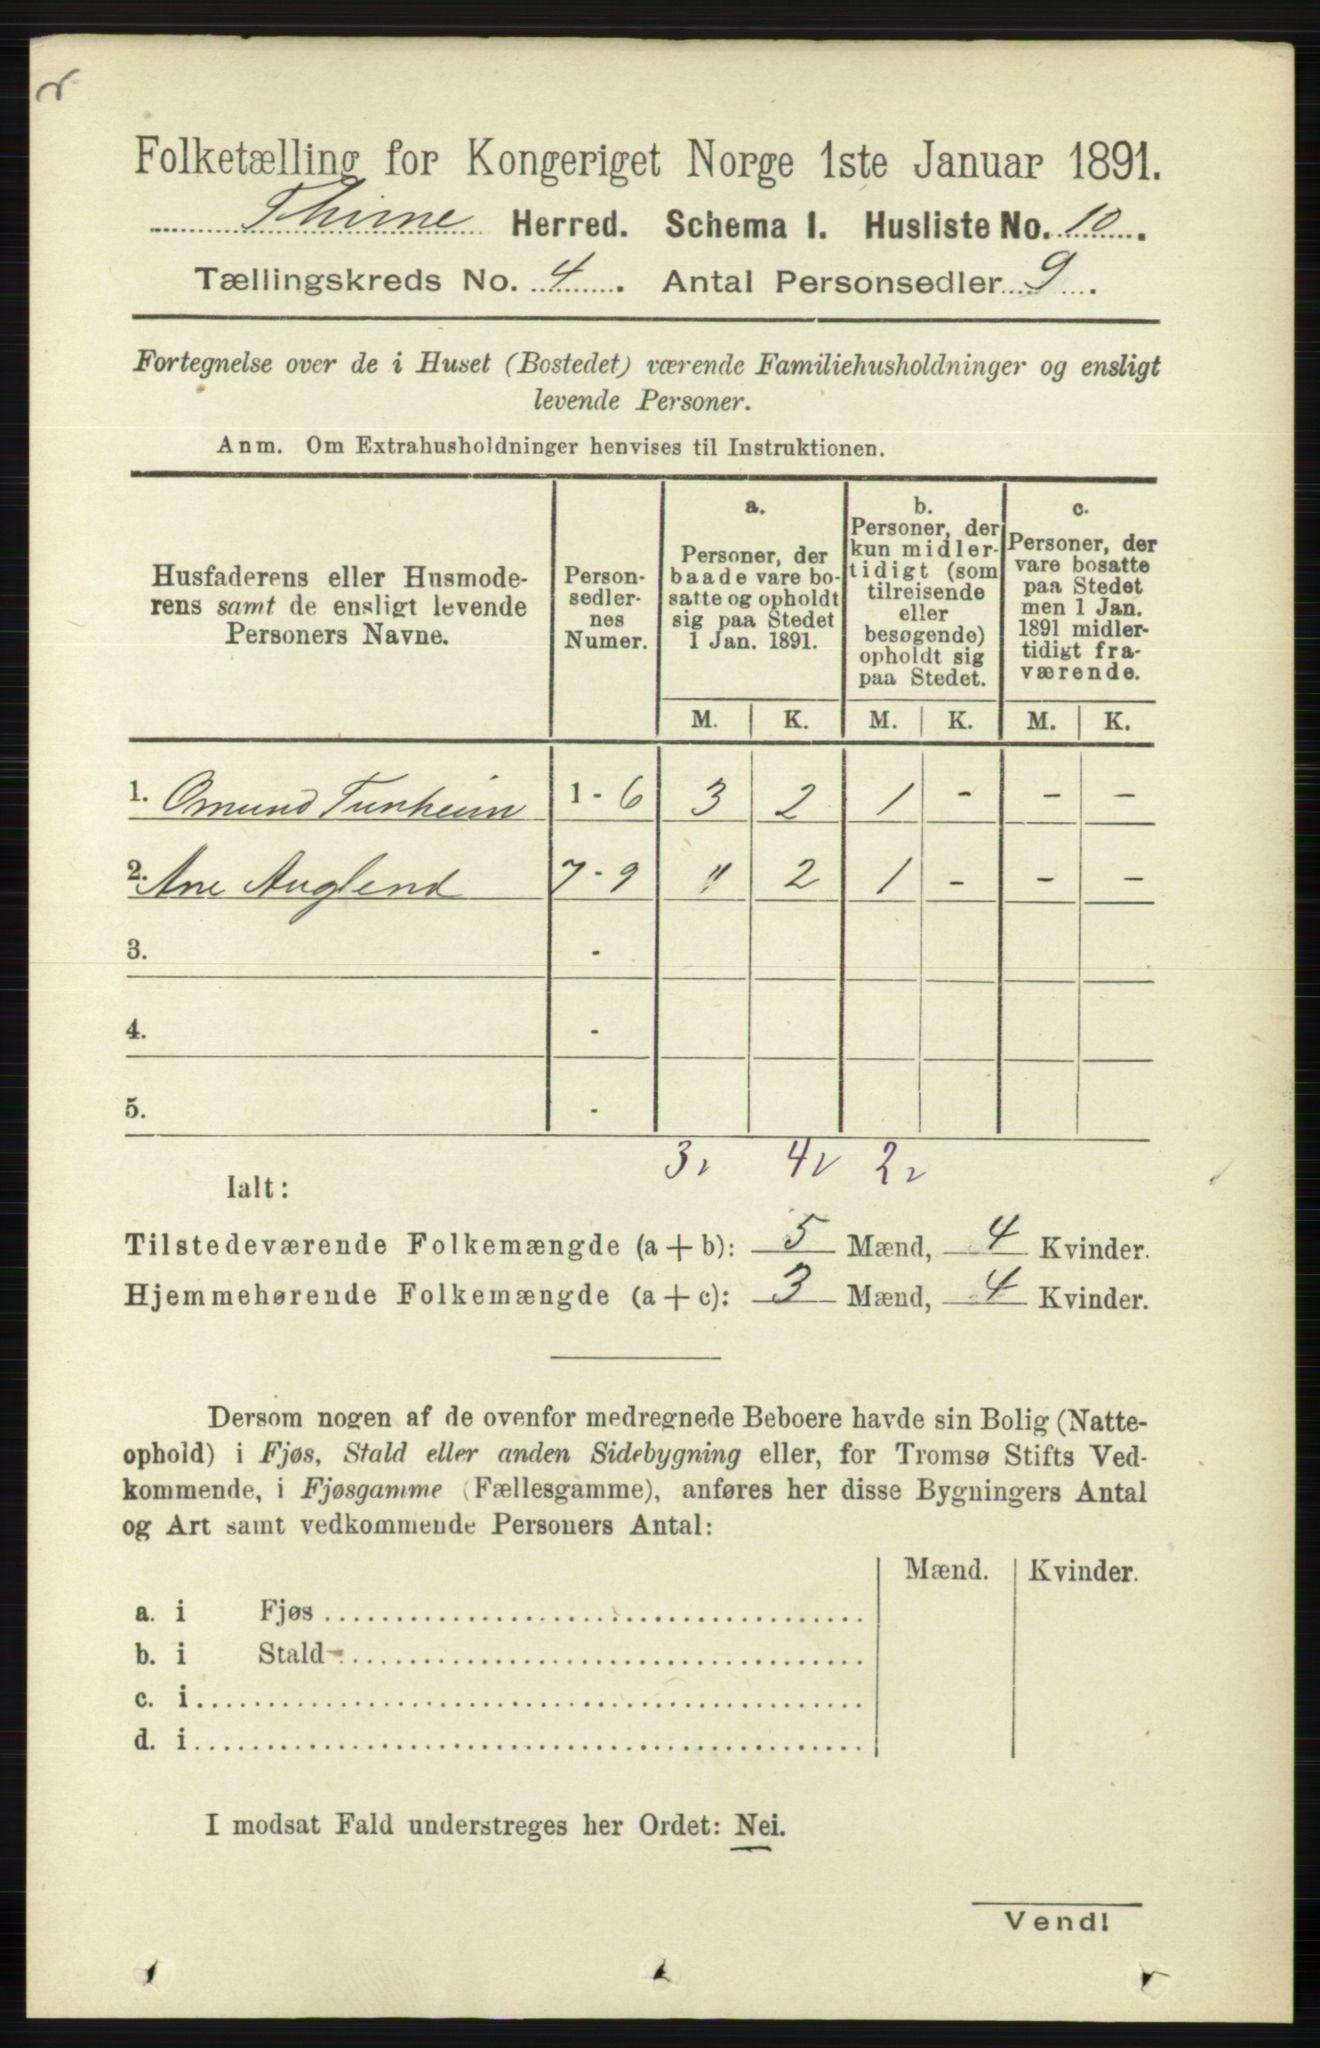 Folketælling for Kongeriget Norge 1ste Januar 1891.
Thime Herred. Schema I. Husliste No. 10.
Tællingskreds No. 4. Antal Personsedler 9.
Fortegnelse over de i Huset (Bostedet) værende Familiehusholdninger og ensligt
levende Personer.
Anm. Om Extrahusholdninger henvises til Instruktionen.
Husfaderens eller Husmode-
rens samt de ensligt levende
Personers Navne.
Person-
sedler-
nes
Numer.
a.
Personer, der
baade vare bo-
satte og opholdt
sig paa Stedet
1 Jan. 1891.
b.
Personer, der
kun midler-
tidigt (som
tilreisende
eller
besøgende)
opholdt sig
paa Stedet.
c.
Personer, der
vare bosatte
paa Stedet
men 1 Jan.
1891 midler-
tidigt fra-
værende.
M. K. M. K. M. K.
1. Omund Tunheim 1 - 6 3 2 1 - - -
2. Ane Auglend 7 - 9 " 2 1 - - -
3. -
4. -
5. -
3 4 2
Ialt:
Tilstedeværende Folkemængde (a + b): 5 Mænd, 4 Kvinder.
Hjemmehørende Folkemængde (a + c): 3 Mænd, 4 Kvinder.
Dersom nogen af de ovenfor medregnede Beboere havde sin Bolig (Natte-
ophold) i Fjøs, Stald eller anden Sidebygning eller, for Tromsø Stifts Ved-
kommende, i Fjøsgamme (Fællesgamme), anføres her disse Bygningers Antal
og Art samt vedkommende Personers Antal:
Mænd. Kvinder.
a. i Fjøs
b. i Stald
c. i
d. i
I modsat Fald understreges her Ordet: Nei.
Vend!